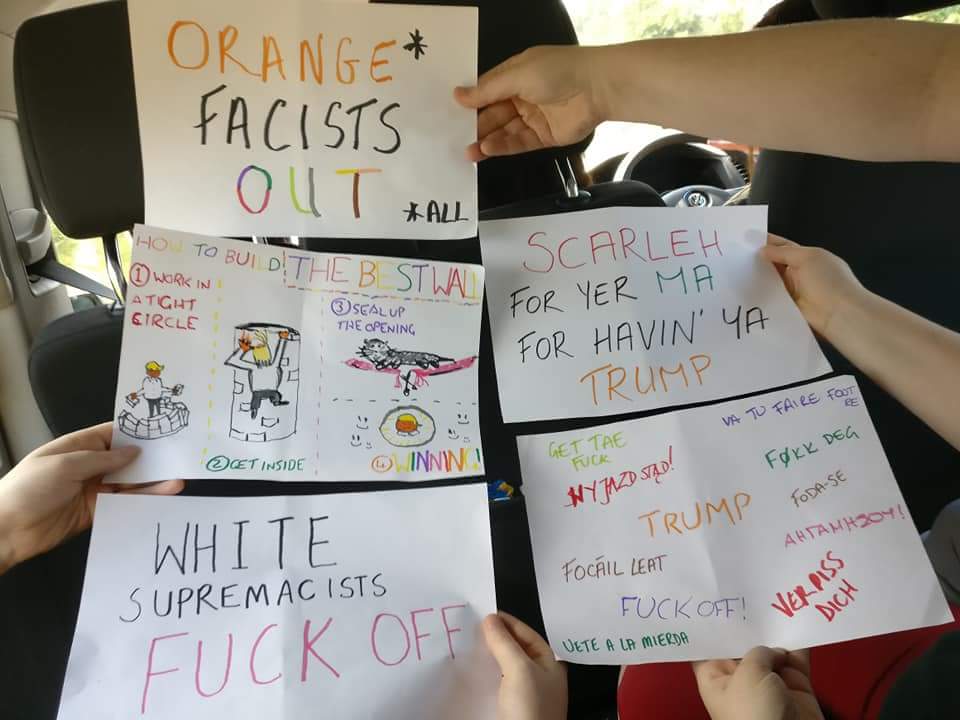 ORANGE*
FACISTS
OUT
*ALL
HOW TO BUILD THE BEST WALL
① WORK IN
A TIGHT
CIRCLE
② GET INSIDE
③ SEAL UP
THE OPENING
④ WINNING!
SCARLEH
FOR YER MA
FOR HAVIN' YA
TRUMP
WHITE
SUPREMACISTS
FUCK OFF
GET TAE
FUCK
VA TU FAIRE FOUT
RE
WYJAZD STĄD!
FØKK DEG
TRUMP
FODA-SE
FOCÁIL LEAT
АНГАМНЗОУ!
FUCK OFF!
VERPISS
DICH
VETE A LA MIERDA